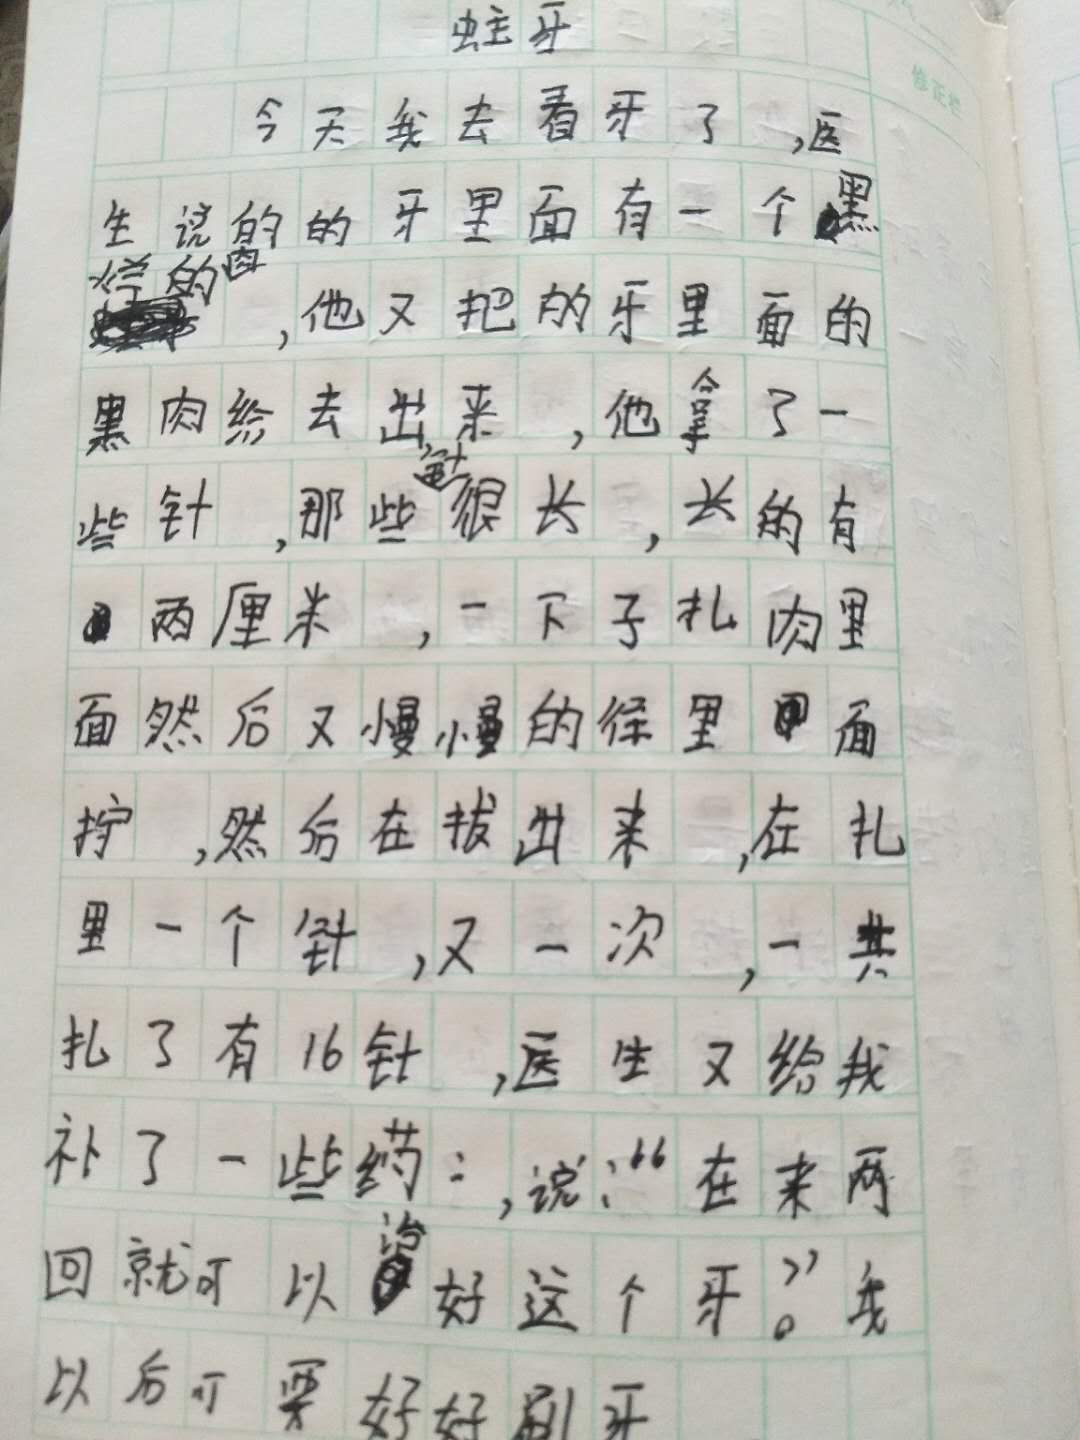 蛀牙
今天我去看牙了,医
生说的的牙里面有一个黑
的肉,他又把的牙里面的
黑肉给去出来,他拿了一
些针,那些针很长,长的有
两厘米,一下子扎肉里
面然后又慢慢的径里面
拧,然后在拔出来,在扎
里一个针,又一次,一共
扎了有16针,医生又给我
补了一些药:,说:“在来两
回就可以治好这个牙。”我
以后可要好好刷牙
修正栏